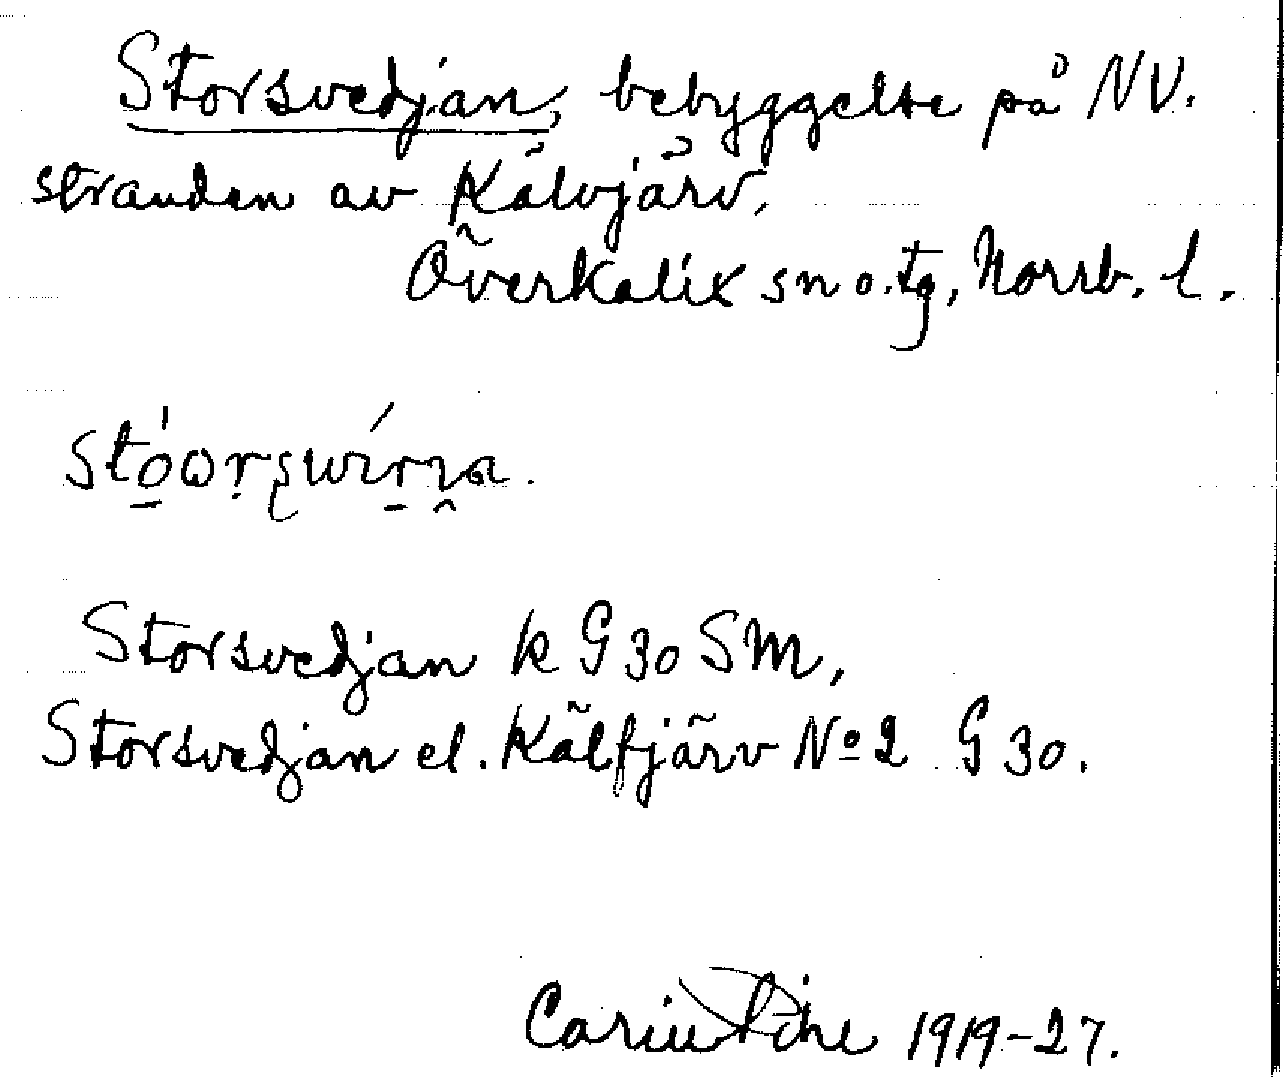 Storsvedjan, bebyggelse på NV.
stranden av Kälvjärv,
Överkalix sn o. tg, Norrb. l.
Storsvedjan k G 30 SM,
Storsvedjan el. Kälfjärv No 2 G 30.
Carin Pihl 1919-27.